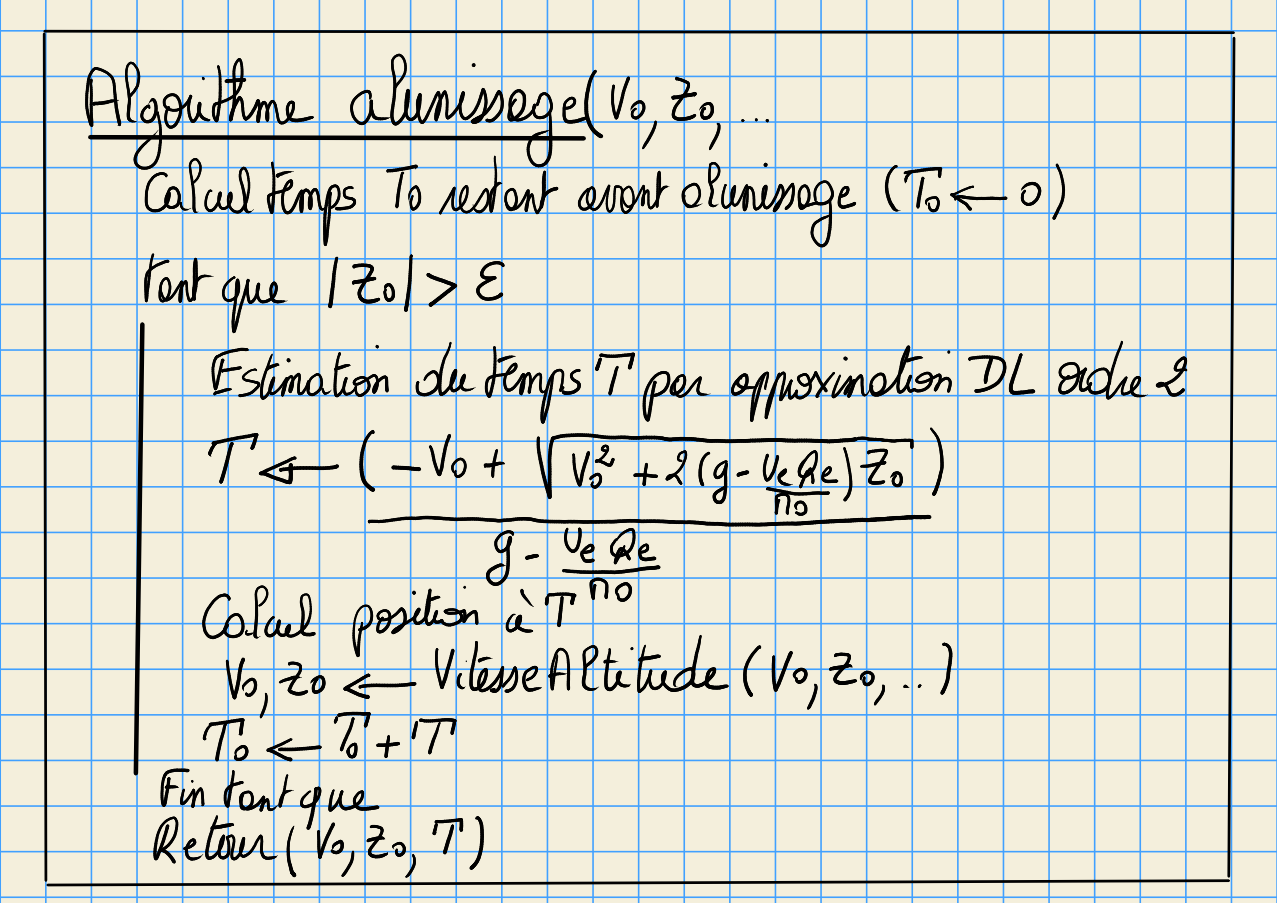 Algorithme alunissage(V₀, Z₀, ...
Calcul temps T₀ restant avant alunissage (T₀ ← 0)
Tant que |Z₀| > ε
Estimation du temps T par approximation DL ordre 2
T ← (-V₀ + √(V₀² + 2(g - VeQe/m₀)Z₀)) / (g - VeQe/m₀)
Calcul position à T
V₀, Z₀ ← VitesseAltitude(V₀, Z₀, ..)
T₀ ← T₀ + T
Fin tant que
Retour(V₀, Z₀, T)